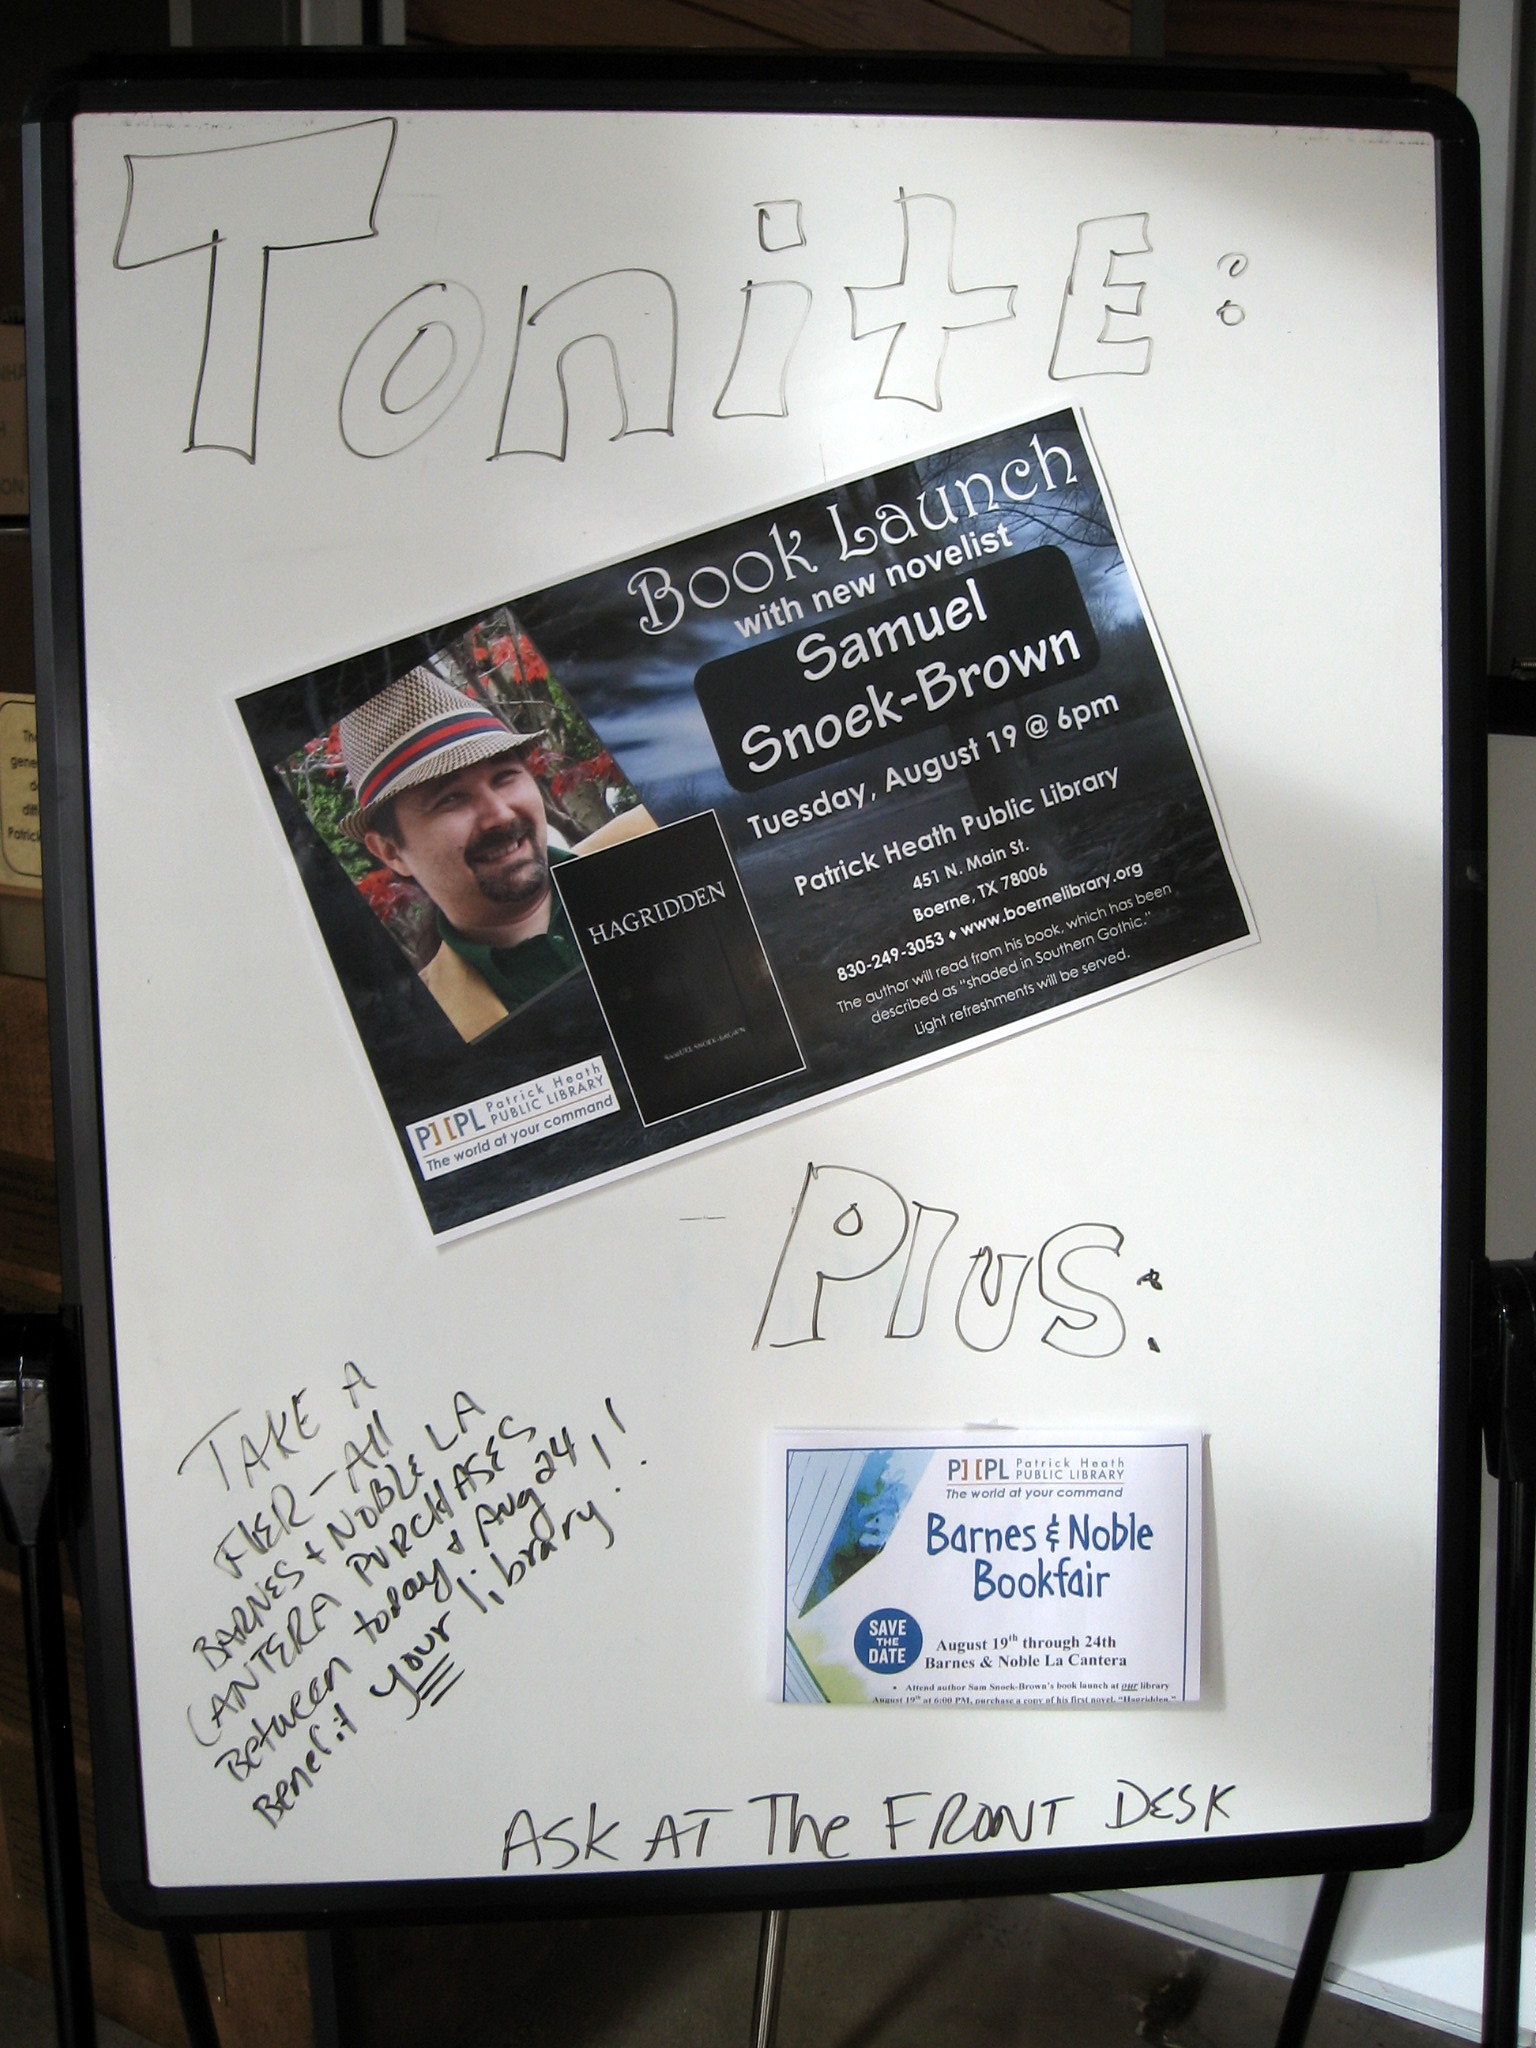 Tonite:
Book Launch
with new novelist
Samuel
Snoek-Brown
Tuesday, August 19 @ 6pm
Patrick Heath Public Library
451 N. Main St.
Boerne, TX 78006
830-249-3053 ♦ www.boernelibrary.org
The author will read from his book, which has been
described as "shaded in Southern Gothic."
Light refreshments will be served.
HAGRIDDEN
SAMUEL SNOEK-BROWN
P][PL Patrick Heath
PUBLIC LIBRARY
The world at your command
Plus:
TAKE A
FlER - All
BARNES + NOBLE LA
CANTERA PURCHASES
Between today & Aug 24
Benefit your library!!
P][PL Patrick Heath
PUBLIC LIBRARY
The world at your command
Barnes & Noble
Bookfair
SAVE
THE
DATE
August 19th through 24th
Barnes & Noble La Cantera
• Attend author Sam Snoek-Brown's book launch at our library
August 19th at 6:00 PM, purchase a copy of his first novel, "Hagridden,"
ASK AT The FRONT DESK